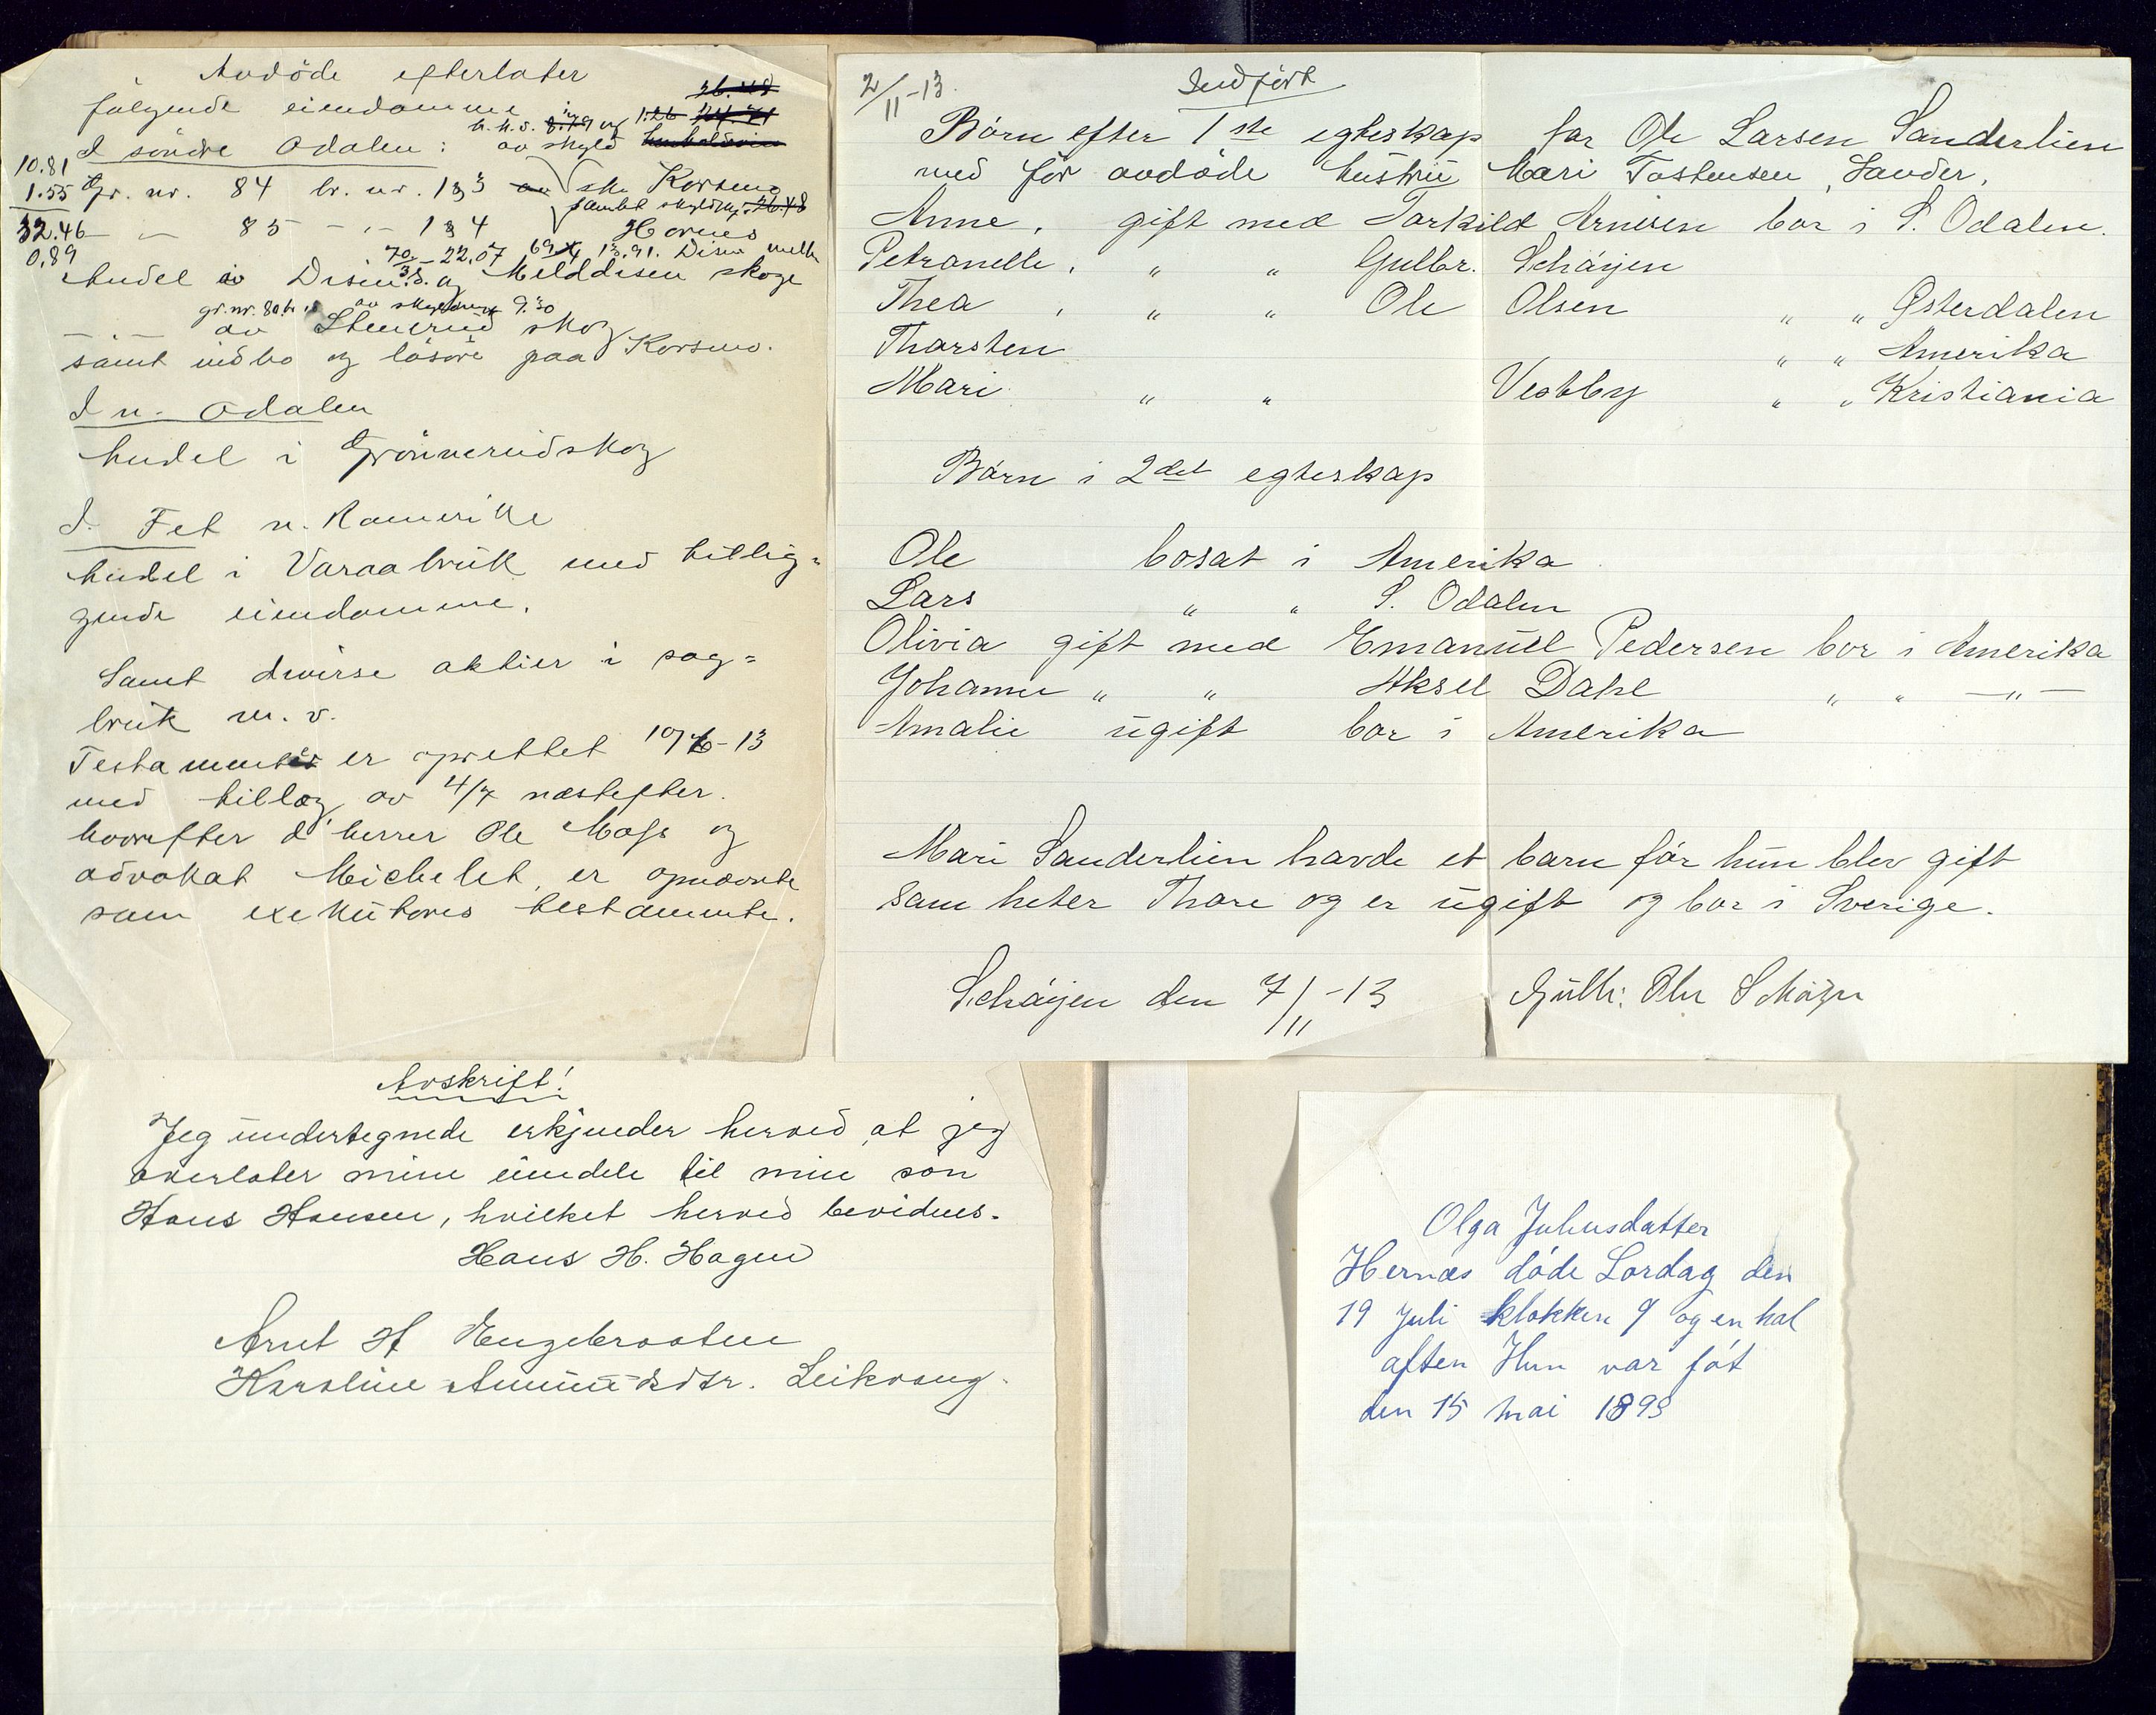 Avdöde efterlater
følgende eiendomme
I söndre Odalen: av skyld
10.81
1.55 Gr. nr. 84 br. nr. 133 Korsmo
32.46 — — 85 — „ — 134 Hornes
0.89
70/3 - 22.07 69/4 13.91.
Andel i Disen og Melddisen skoge
gr. nr. 80 av skyldmk 9.30
— „ — av Stenerud skog
samt indbo og lösöre paa Korsmo.
I n. Odalen
Andel i Grönnerudskog
I Fet n. Romerike
Andel i Varaa bruk med tillig=
gende eiendomme.
Samt diverse aktier i sag=
bruk m. v.
Testamente er oprettet 10/6-13
med tillæg av 4/7 næstefter.
hvorefter d'herrer Ole Moss og
advokat Michelet, er opnævnte
som exekutores testamente.
2/11-13. Indført
Børn efter 1ste egteskap far Ole Larsen Sanderlien
med før avdøde hustru Mari Tostensen, Sander.
Anne, gift med Torkild Arnesen bor i S. Odalen.
Petronelle, „ „ Gulbr. Schøyen
Thea, „ „ Ole Olsen „ „ Østerdalen
Thorsten „ „ Amerika
Mari „ „ Vestby „ „ Kristiania
Børn i 2det egteskap
Ole bosat i Amerika
Lars „ „ S. Odalen
Olivia gift med Emanuel Pedersen bor i Amerika
Johanne „ „ Aksel Dahl „ „ —„—
Amalie ugift bor i Amerika
Mari Sanderlien havde et barn før hun blev gift
som heter Thore og er ugift og bor i Sverige.
Schøyen den 7/11-13 Gulb. Olsn Schøyn
Avskrift!
Jeg undertegnede erkjender herved at jeg
overlater mine eiendele til min søn
Hans Hansen, hvilket herved bevidnes.
Hans H. Hagen
Arnt H Engebraaten
Karoline Amundsdtr. Leikvang.
Olga Juhusdatter
Hernæs døde Lørdag den
19 Juli klokken 9 og en hal
aften Hun var føt
den 15 mai 1893